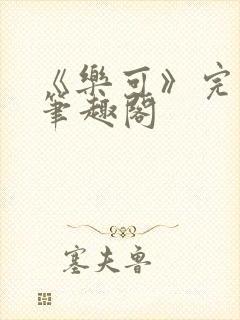 《樂可》完
筆趣閣
塞夫魯